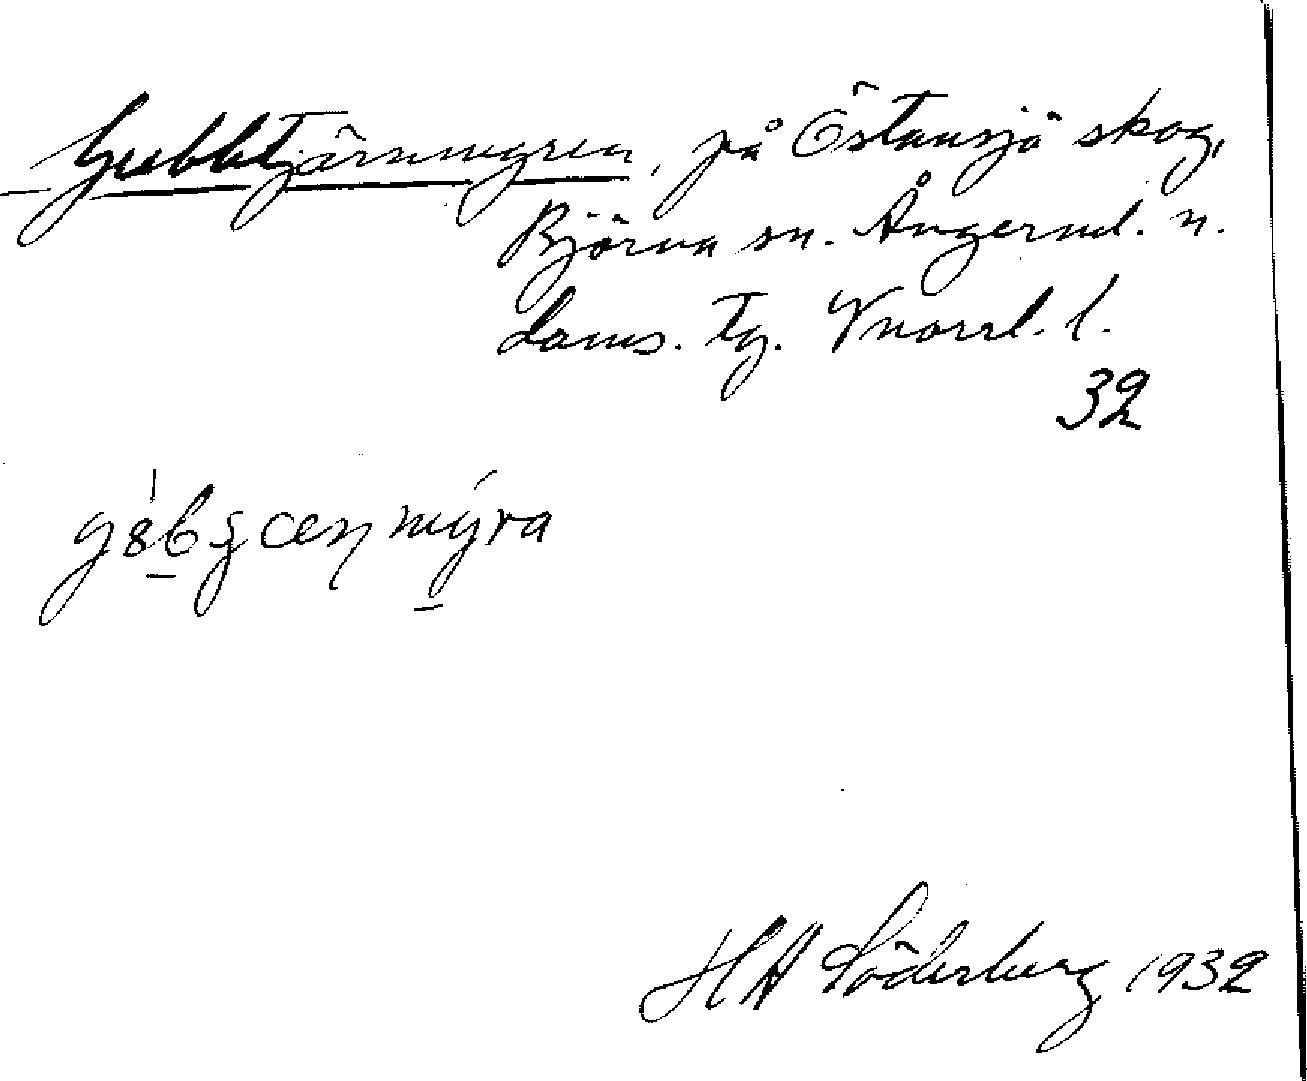 Gubbtjärnmyren, på Östansjö skog,
Björna sn. Ångerml. n.
doms. tg. Vnorrl. l.
32
H A Söderberg 1932